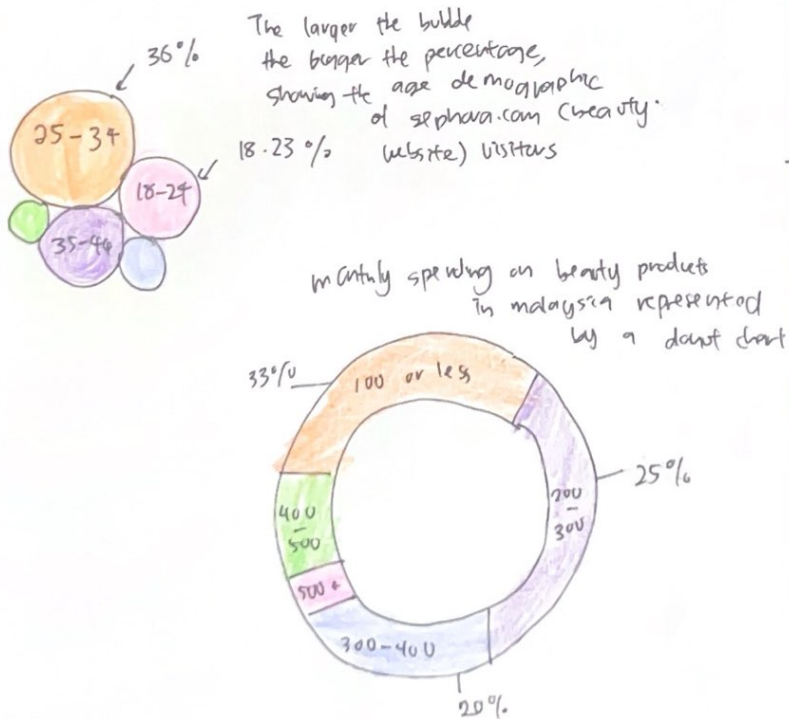 The larger the bubble
36%
the bigger the percentage,
showing the age demographic
of sephora.com (beauty
18.23%
website) visitors
25-34
18-24
35-44
monthly spending on beauty products
in malaysia represented
by a donut chart
33%
100 or less
25%
200
-
300
400
-
500
500+
300-400
20%